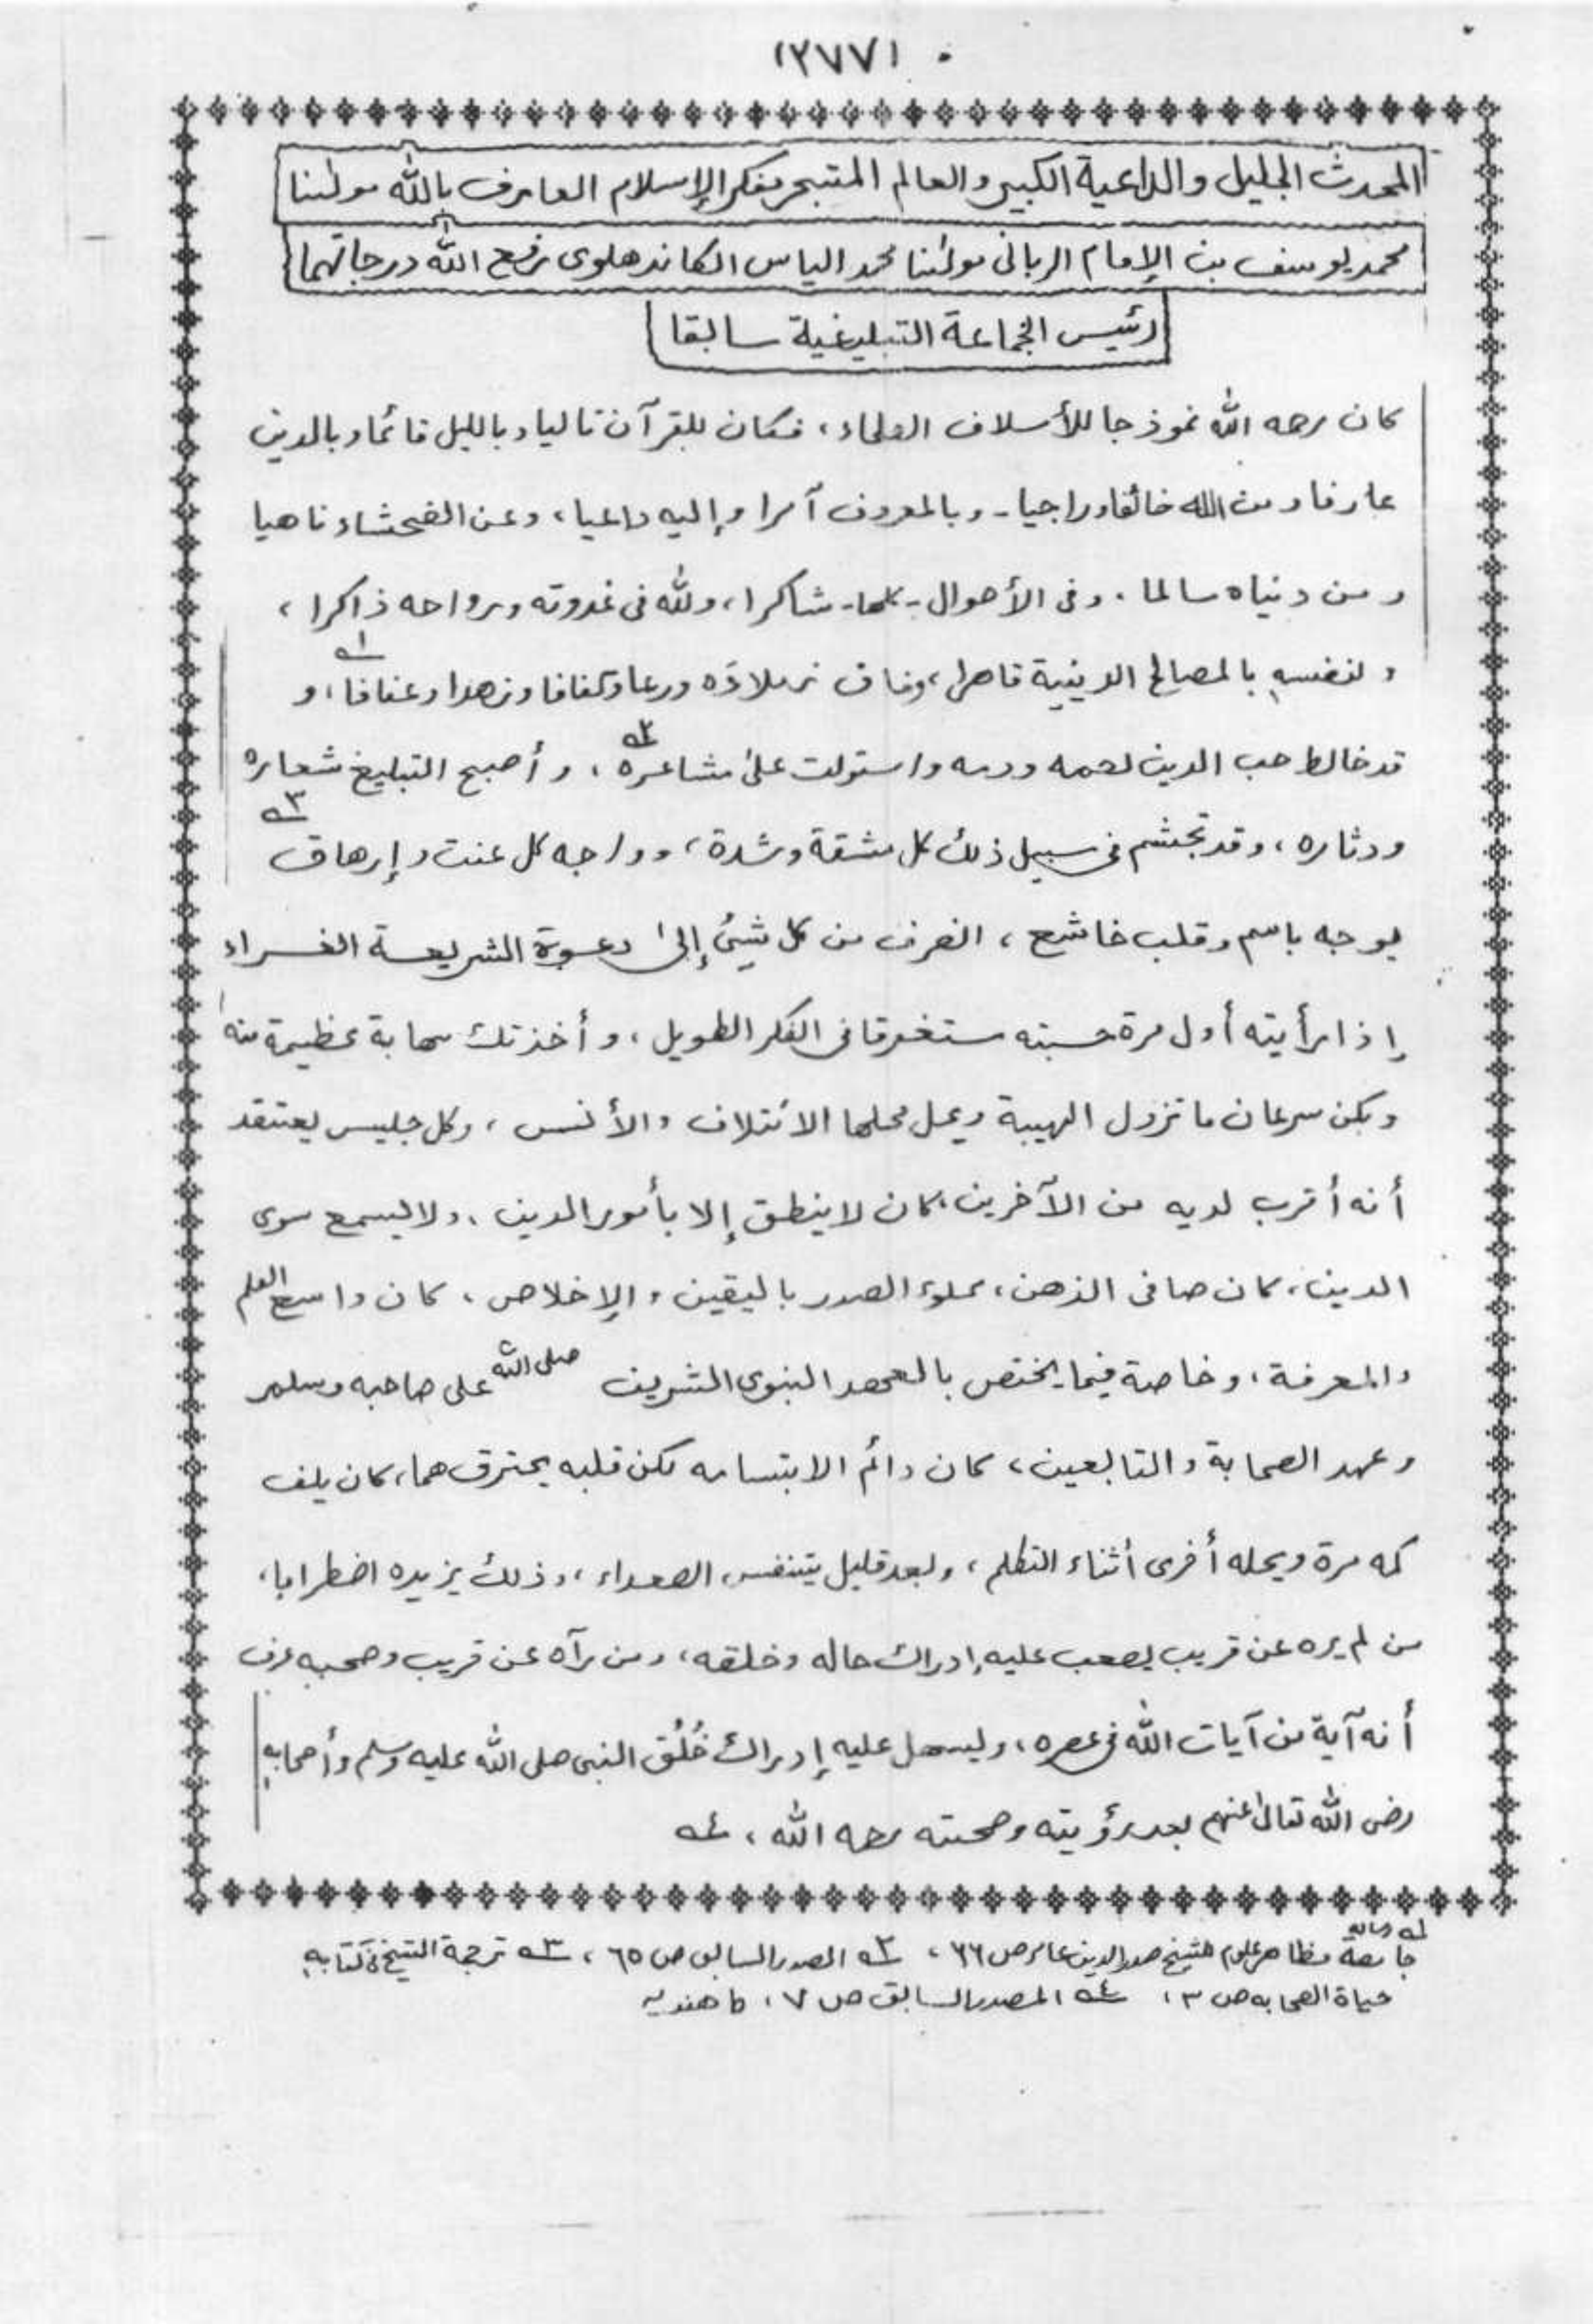 (٢٧٧)
المحدث الجليل والداعية الكبير والعالم المتبحر مفكر الإسلام العارف بالله مولٰنا
محمد يوسف بن الإمام الرباني مولٰنا محمد الياس الكاندهلوى رفع الله درجاتهما
رئيس الجماعة التبليغية سابقا
كان رحمه الله نموذجا للأسلاف العلماء، فكان للقرآن تاليا وبالليل قائما وبالدين
عارفا ومن الله خائفا وراجيا۔ وبالمعروف آمرا وإليه داعيا، وعن الفحشاء ناهيا
ومن دنياه سالما. وفى الأحوال۔كلها۔شاكرا، ولله فى غدوته ورواحه ذاكرا،
ولنفسه بالمصالح الدينية قاهرا، وفاق زملاءه ورعا وكفافا وزهدا وعفافا،١ و
قد خالط حب الدين لحمه ودمه واستولت علىٰ مشاعره٢، وأصبح التبليغ شعاره
ودثاره، وقد تجشم فى سبيل ذلك كل مشقة وشدة، وواجه كل عنت وإرهاق٣
بوجه باسم وقلب خاشع، انصرف من كل شيئ إلىٰ دعوة الشريعة الغراء
إذا رأيته أول مرة حسبته مستغرقا فى الفكر الطويل، وأخذتك مهابة عظيمة منه
ولكن سرعان ما تزول الهيبة ويحل محلها الائتلاف والأنس، وكل جليس يعتقد
أنه أقرب لديه من الآخرين، كان لا ينطق إلا بأمور الدين، ولا يسمع سوى
الدين، كان صافى الذهن، مملوء الصدر باليقين والإخلاص، كان واسع العلم
والمعرفة، وخاصة فيما يختص بالعهد النبوى الشريف صلى الله على صاحبه وسلم
وعهد الصحابة والتابعين، كان دائم الابتسامه لكن قلبه يحترق هما، كان يلف
كمه مرة ويحله أخرى أثناء التكلم، وبعد قليل يتنفس الصعداء، وذلك يزيده اضطرابا،
من لم يره عن قريب يصعب عليه إدراك حاله وخلقه، ومن رآه عن قريب وصحبه عرف
أنه آية من آيات الله فى عصره، ويسهل عليه إدراك خُلُق النبى صلى الله عليه وسلم وأصحابه
رضى الله تعالىٰ عنهم بعد رؤيته وصحبته رحمه الله، ٤
١ رسالة جامعة مظاهر علوم للشيخ صدر الدين عامر ص ٦٦، ٢ المصدر السابق ص ٦٥، ٣ ترجمة الشيخ فى كتابه
حياة الصحابه ص ٣، ٤ المصدر السابق ص ٧، ط هنديه